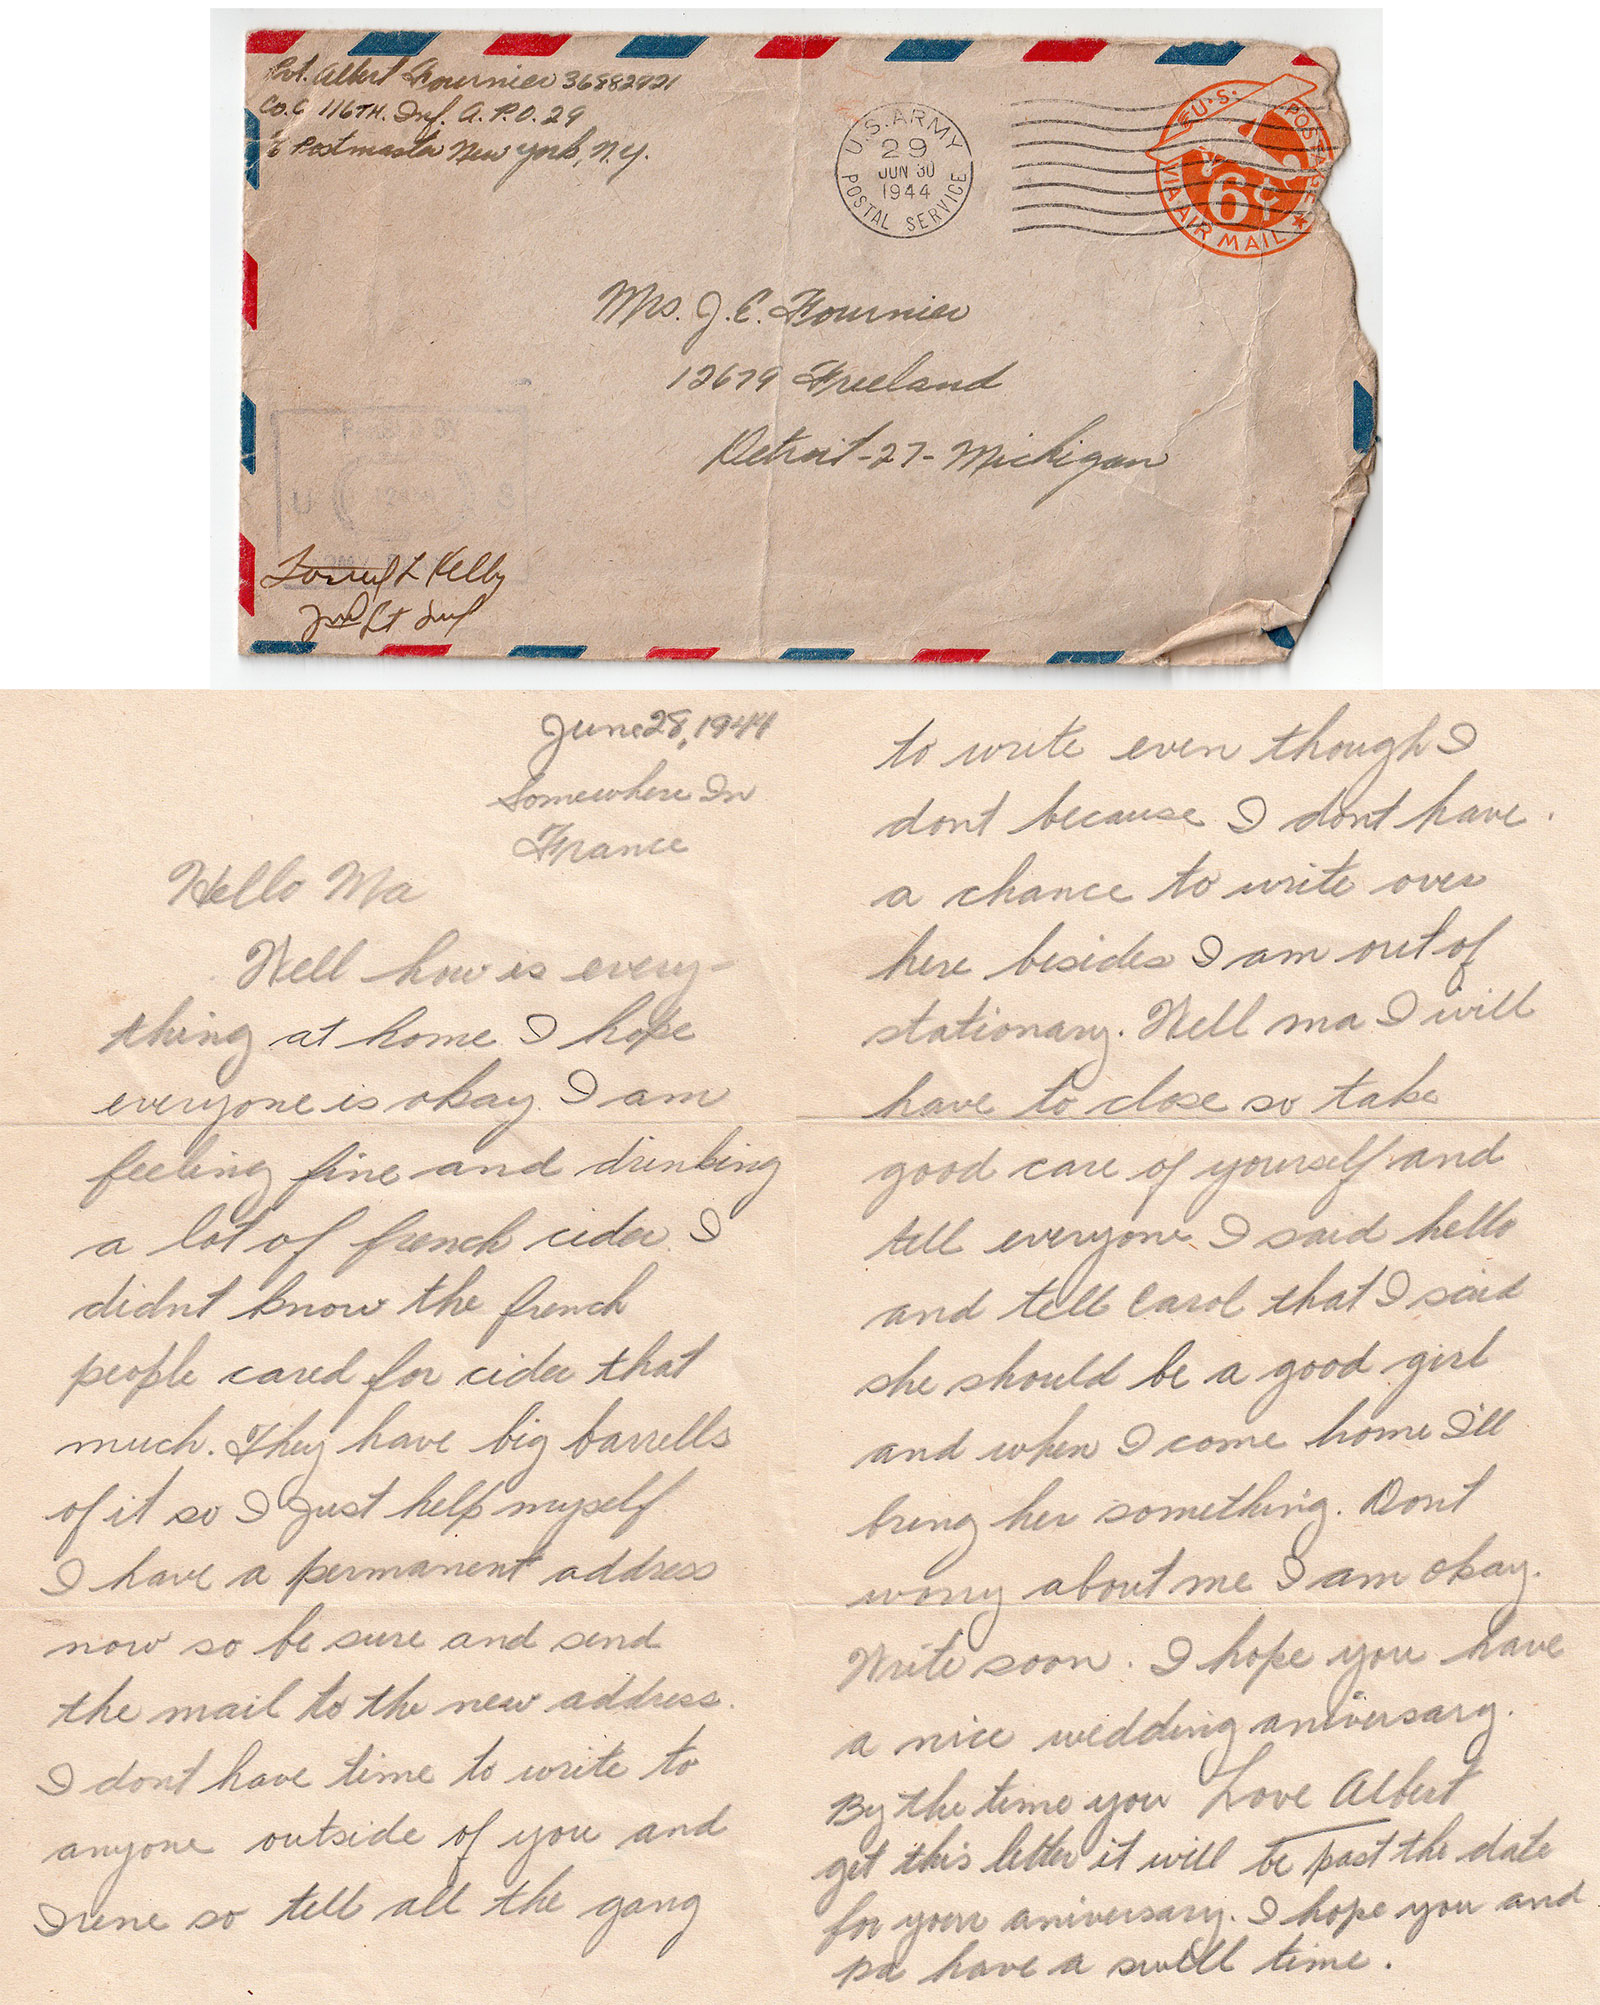 Pvt. Albert Fournier 36882921
Co.C 116TH. Inf. A.P.O. 29
% Postmaster New York, N.Y.
U.S. ARMY
29
JUN 30
1944
POSTAL SERVICE
U.S. POSTAGE
6¢
VIA AIR MAIL
Mrs. J. E. Fournier
12679 Freeland
Detroit-27-Michigan
U S
L Kelly
2nd Lt Inf
June 28, 1944
Somewhere In
France
Hello Ma
Well how is every-
thing at home I hope
everyone is okay. I am
feeling fine and drinking
a lot of french cider. I
didnt know the french
people cared for cider that
much. They have big barrells
of it so I Just help myself
I have a permanent address
now so be sure and send
the mail to the new address.
I dont have time to write to
anyone outside of you and
Irene so tell all the gang
to write even though I
dont because I dont have
a chance to write over
here besides I am out of
stationary. Well ma I will
have to close so take
good care of yourself and
tell everyone I said hello
and tell Carol that I said
she should be a good girl
and when I come home I'll
bring her something. Dont
worry about me I am okay.
Write soon. I hope you have
a nice wedding aniversary.
Love Albert
By the time you
get this letter it will be past the date
for your aniversary. I hope you and
pa have a swell time.